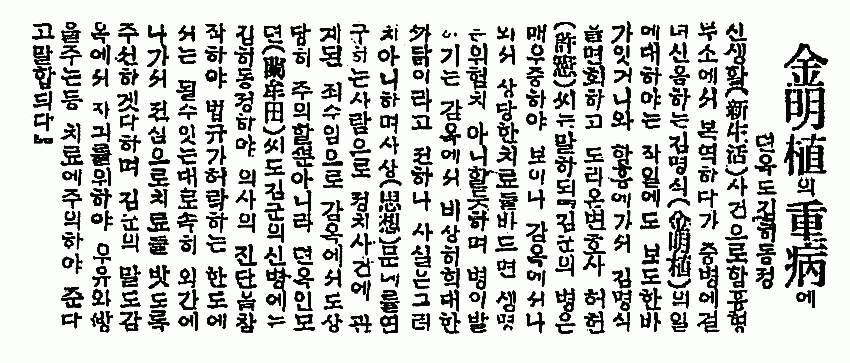 金明植의重病에
뎐옥도김히동정
신생활(新生活)사건으로함흥형
무소에서 복역하다가 중병에걸
녀신음하는김명식(金明植)의일
에대하야는 작일에도 보도한바
가잇거니와 함흥에가서 김명식
을면회하고 도라온변호사 허헌
(許憲)씨는말하되『김군의 병은
매우중하야 보이나 감옥에서나
와서 상당한치료를바드면 생명
은위험치 아니할듯하며 병이발
기는 감옥에서 비상히희대한
까닭이라고 전하나 사실은그러
치아니하며사상(思想)문뎨를연
구하는사람으로 정치사건에 관
계된 죄수임으로 감옥에서도상
당히 주의할뿐아니라 뎐옥인모
뎐(牟田)씨도김군의신병에는
김히동정하야 의사의 진단을참
작하야 법규가허락하는 한도에
서는 될수잇는대로속히 외간에
나가서 전심으로치료를 밧도록
주선하겟다하며 김군의 말도감
옥에서 자긔를위하야 우유와쌍
을주는등 치료에주의하야 준다
고말합듸다』